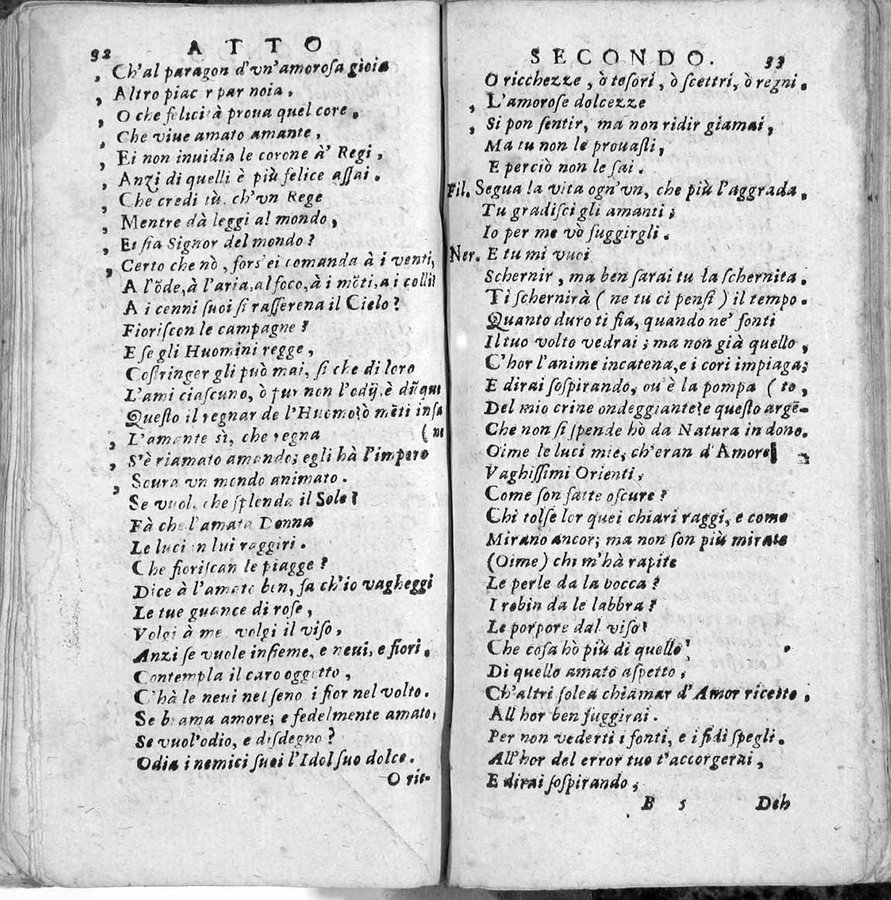 92 ATTO
, Ch'al paragon d'vn'amorosa gioia
, Altro piac r par noia,
, O che felicità proua quel core,
, Che viue amato amante,
, Ei non inuidia le corone à' Regi,
, Anzi di quelli è più felice assai.
, Che credi tù, ch'vn Rege
, Mentre dà leggi al mondo,
, Et sia Signor del mondo?
, Certo che nò, fors'ei comanda à i venti,
A l'õde, à l'aria, al foco, à i mõti, a i colli?
A i cenni suoi si rasserena il Cielo?
Fioriscon le campagne?
E se gli Huomini regge,
Costringer gli può mai, sì che di loro
L'ami ciascuno, ò pur non l'odij, è dũque
Questo il regnar de l'Huomo? ò mẽti insa
, L'amante sì, che regna (ne
, S'è riamato amando; egli hà l'impero
, Soura vn mondo animato.
Se vuol, che splenda il Sole?
Fà che l'amata Donna
Le luci in lui raggiri.
Che fioriscan le piagge?
Dice à l'amato ben, fa ch'io vagheggi
Le tue guance di rose,
Volgi à me, volgi il viso,
Anzi se vuole insieme, e neui, e fiori,
Contempla il caro oggetto,
C'hà le neui nel seno i fior nel volto.
Se brama amore; e fedelmente amato,
Se vuol'odio, e disdegno?
Odia i nemici suoi l'Idol suo dolce.
O ric-
SECONDO. 33
O ricchezze, ò tesori, ò scettri, ò regni.
, L'amorose dolcezze
, Si pon sentir, ma non ridir giamai,
Ma tu non le prouasti,
E perciò non le sai.
Fil. Segua la vita ogn'vn, che più l'aggrada,
Tu gradisci gli amanti;
Io per me vò fuggirgli.
Ner. E tu mi vuoi
Schernir, ma ben sarai tu la schernita.
Ti schernirà (ne tu ci pensi) il tempo.
Quanto duro ti fia, quando ne' fonti
Il tuo volto vedrai; ma non già quello,
C'hor l'anime incatena, e i cori impiaga;
E dirai sospirando, ou'è la pompa (to,
Del mio crine ondeggiante? e questo argẽ-
Che non si spende hò da Natura in dono.
Oime le luci mie, ch'eran d'Amore
Vaghissimi Orienti,
Come son fatte oscure?
Chi tolse lor quei chiari raggi, e come
Mirano ancor; ma non son più mirate
(Oime) chi m'hà rapite
Le perle da la bocca?
I robin da le labbra?
Le porpore dal viso?
Che cosa hò più di quello?
Di quello amato aspetto,
Ch'altri solea chiamar d'Amor ricetto,
All'hor ben fuggirai.
Per non vederti i fonti, e i fidi spegli.
All'hor del error tuo t'accorgerai,
E dirai sospirando;
B 5 Deh